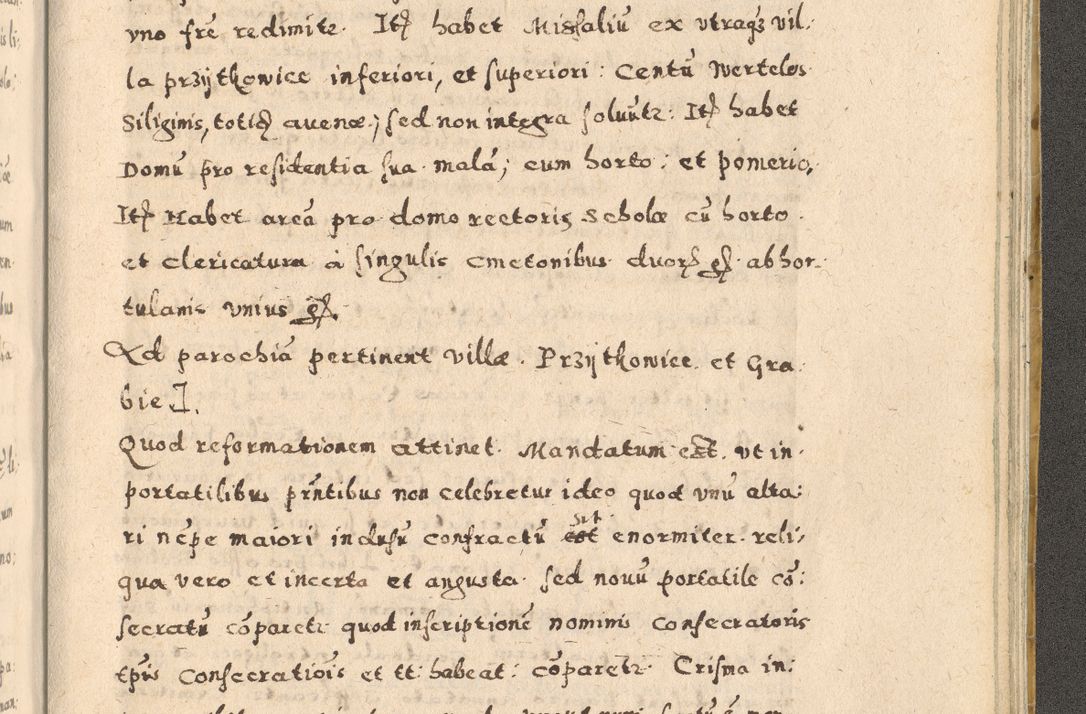 vno frē redimite. Itȩ habet Missaliū ex vtraqȝ vil.
la przÿtkowice inferiori, et superiori: Centū Wertelos
Siliginis, totidȩ avenæ; sed non integra solūntr: Itȩ habet
Domū pro residentia sua malā; cum horto: et pomerio,
Itȩ Habet areā pro domo rectoris Scholæ cū horto.
et clericatura à singulis Cmetonibus duorȩ gȩ abhor-
tulanis vnius gȩ.
Ad parochiā pertinent villæ. Przÿtkowice et Gra
bie].
Quod reformationem attinet. Mandatum est, vt in
portatilibus prñtibus non celebretur ideo quod vnū alta:
ri nēpe maiori inclusū confractū sit enormiter. reli,
qua vero et incerta et angusta. sed novū portatile cō:
secratū cōparetr quod inscriptionē nominis Consecratoris
tp̄is Consecratiōis et tt. habeat: cōparetr. Crisma in: